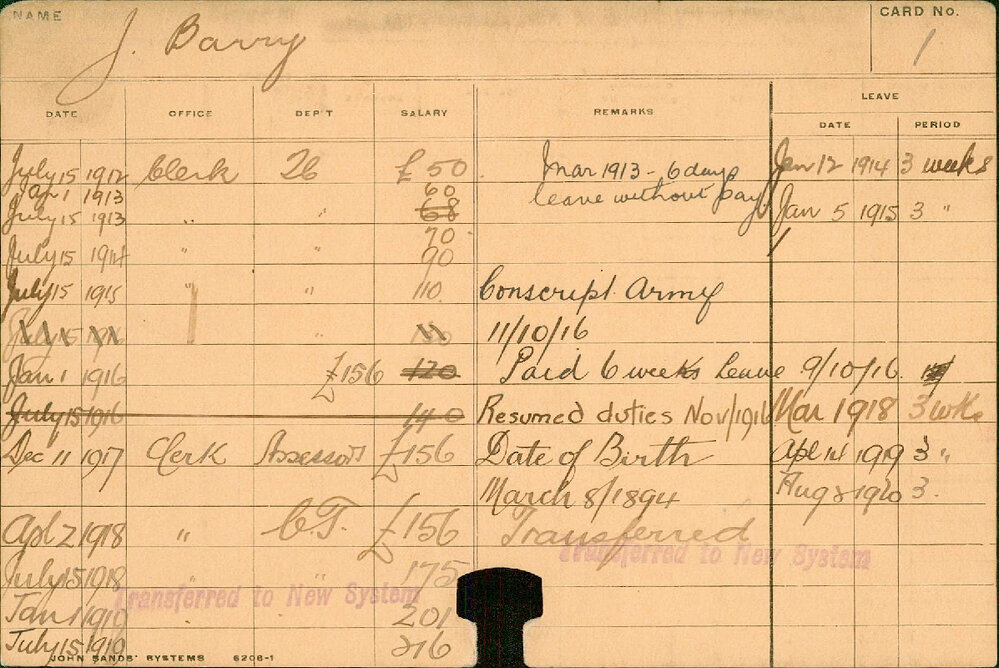 NAME J. Barry CARD No. 1
DATE OFFICE DEP'T SALARY REMARKS LEAVE
DATE PERIOD
July 15 1912 Clerk £50 Mar 1913 - 6 days Jan 12 1914 3 weeks
Apr 1 1913 60 leave without pay
July 15 1913 „ " 68 Jan 5 1915 3 "
70
July 15 1914 " " 90
July 15 1915 " " 110 Conscript Army
July 15 1916 " 11/10/16
Jan 1 1916 £156 120 Paid 6 weeks leave 9/10/16.
July 15 1916 140 Resumed duties Nov/1916 Mar 1918 3 wks
Dec 11 1917 Clerk Assessors £156 Date of Birth Apl 14 1919 3 "
March 8/1894 Aug 1920 3.
Apl 2 1918 " C.T. £156 Transferred
Transferred to New System
July 15 1918 " 175
Transferred to New System
Jan 1 1919 201
July 15 1919 216
JOHN SANDS' SYSTEMS 6206-1